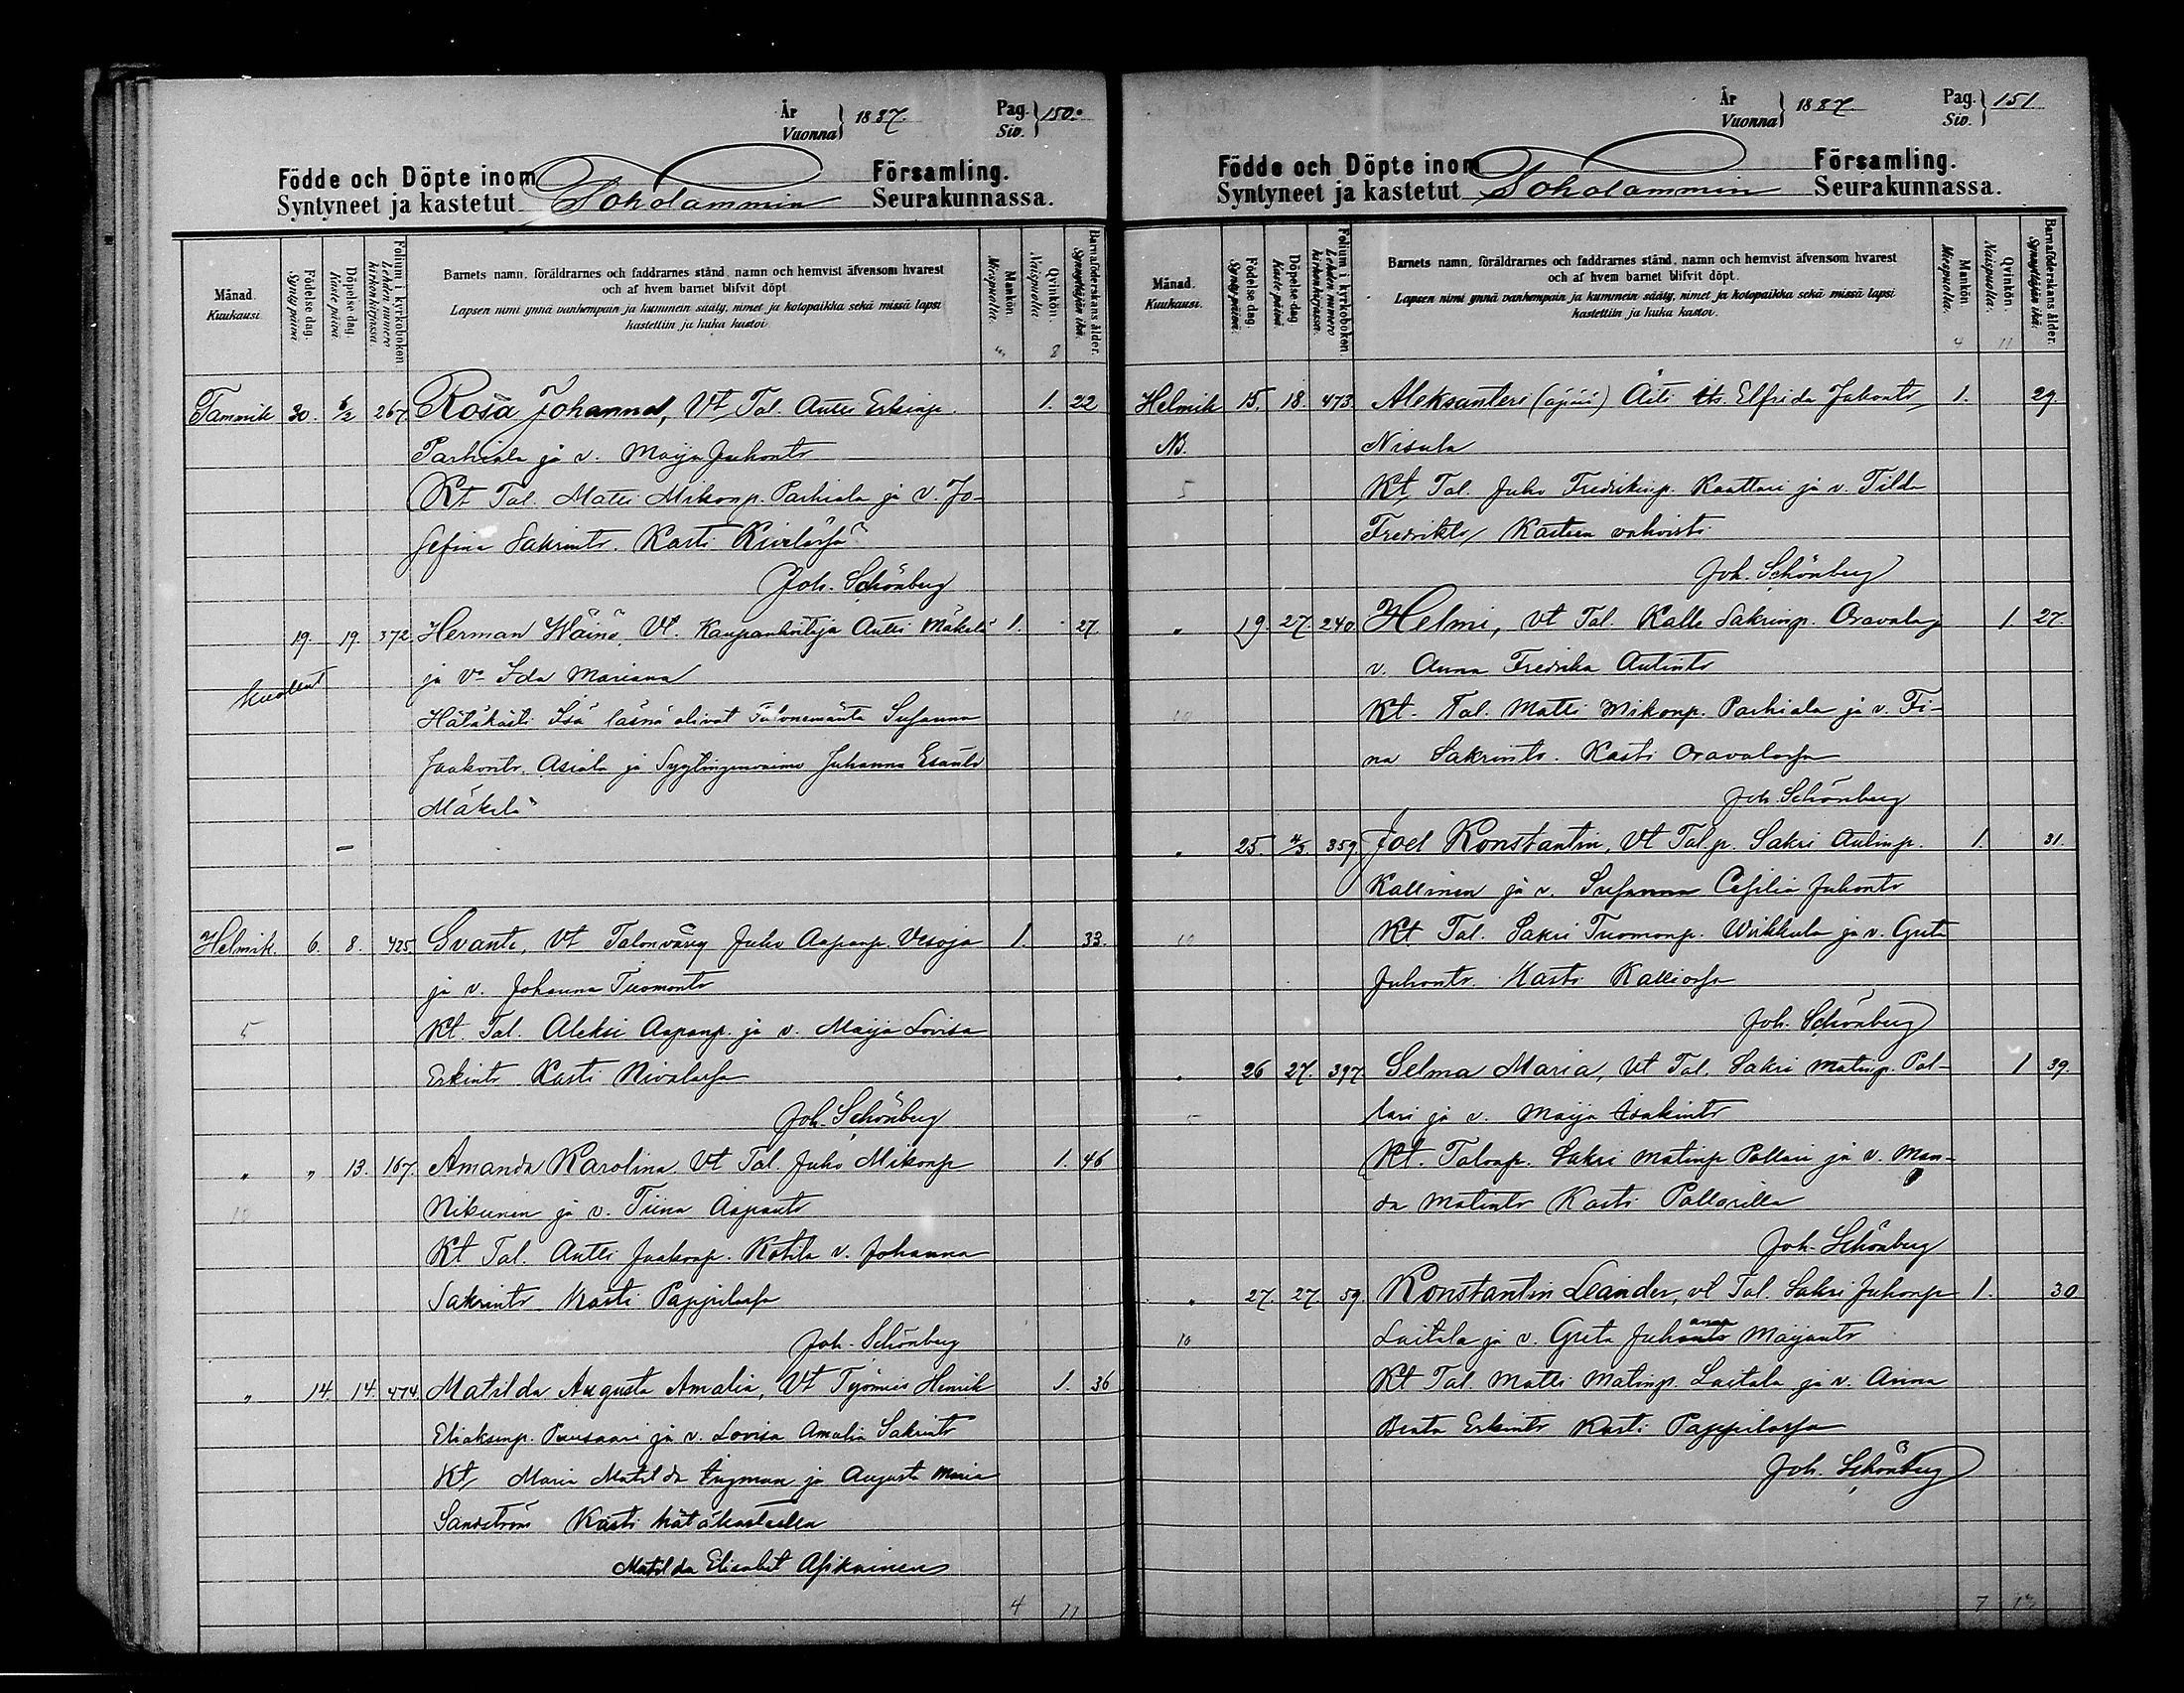 År
Vuonna } 1887.
Pag.
Siv. } 150.
Födde och Döpte inom Toholammin Församling.
Syntyneet ja kastetut Seurakunnassa.
Månad. Kuukausi.
Födelse dag. Synty päivä.
Döpelse dag. Kaste päivä.
Folium i kyrkoboken. Lehden numero kirkonkirjassa.
Barnets namn, föräldrarnes och faddrarnes stånd, namn och hemvist äfvensom hvarest
och af hvem barnet blifvit döpt.
Lapsen nimi ynnä vanhempain ja kummein sääty, nimet ja kotopaikka sekä missä lapsi
kastettiin ja kuka kastoi.
Mankön. Miespuolia.
Qvinkön. Naispuolia.
Barnaföderskans ålder. Synnyttäjän ikä.
8
Tammik 30. 6/2 267 Rosa Johanna, Vt Tal. Antti Erkinp. 1. 22
Parhiala ja v. Maija Juhontr
Kt Tal. Matti Mikonp. Parhiala ja v. Jo-
sefina Sakrintr. Kasti
Joh. Schönberg
19. 19. 372 Herman Wäinö Vt. Kaupanhoitaja Antti Mäkelä 1. 27.
kuollut ja vo Ida Mariana
Hätäkasti Isä läsnä olivat Talonemäntä Susanna
Jaakontr. Asiala ja Syytinginvaimo Johanna Esäntr
Mäkelä
Helmik. 6. 8. 425. Svante, Vt Talonvävy Juho Aapanp. Vesoja 1. 33.
ja v. Johanna Tuomontr
5 Kt. Tal. Aleksi Aapanp. ja v. Maija Lovisa
Erkintr Kasti Nivalassa
Joh. Schönberg
" " 13. 167. Amanda Karolina Vt Tal. Juho Mikonp 1. 46
10 Nikunen ja v. Tiina Aapantr
Kt Tal. Antti Jaakonp. Kotila v. Johanna
Sakrintr Kasti Pappilassa
Joh. Schönberg
" 14. 14. 474. Matilda Augusta Amalia, Vt Työmies Henrik 1. 36
Eliaksenp. Puusaari ja v. Lovisa Amalia Sakrintr
Kt Maria Matilda Engman ja Augusta Maria
Sandström Kasti hätäkasteella
Matilda Elisabet Asikainen
4 11
År
Vuonna } 1887.
Pag.
Siv. } 151
Födde och Döpte inom Toholammin Församling.
Syntyneet ja kastetut Seurakunnassa.
Månad. Kuukausi.
Födelse dag. Synty päivä.
Döpelse dag. Kaste päivä.
Folium i kyrkoboken. Lehden numero kirkonkirjassa.
Barnets namn, föräldrarnes och faddrarnes stånd, namn och hemvist äfvensom hvarest
och af hvem barnet blifvit döpt.
Lapsen nimi ynnä vanhempain ja kummein sääty, nimet ja kotopaikka sekä missä lapsi
kastettiin ja kuka kastoi.
Mankön. Miespuolia.
Qvinkön. Naispuolia.
Barnaföderskans ålder. Synnyttäjän ikä.
4 11
Helmik 15. 18. 473. Aleksanteri (äpärä) Äiti its. Elfrida Jakontr 1. 29.
NB. Nisula
5 Kt Tal. Juho Fredrikinp. Kaattari ja v. Tilda
Fredriktr Kasteen vahvisti
Joh. Schönberg
" 19. 27. 240 Helmi, Vt Tal. Kalle Sakrinp. Oravala ja 1. 27.
v. Anna Fredrika Antintr
10 Kt. Tal. Matti Mikonp. Parhiala ja v. Fi-
na Sakrintr. Kasti Oravalassa
Joh. Schönberg
" 25. 4/3. 359. Joel Konstantin, Vt Tal.p. Sakri Antinp. 1. 31.
Kallinen ja v. Susanna Cesilia Juhontr
10 Kt Tal. Sakri Tuomonp. Wirkkula ja v. Greta
Juhontr. Kasti Kalliossa
Joh. Schönberg
" 26 27. 397 Selma Maria, Vt Tal. Sakri Matinp. Pol- 1 39.
5 lari ja v. Maija Isakintr
Kt. Talonp. Sakri Matinp Pollari ja v. Man-
da Matintr Kasti Pollarilla
Joh. Schönberg
" 27. 27. 59. Konstantin Leander, Vt Tal. Sakri Juhonp 1. 30
10 Laitala ja v. Greta Juhontr Maijantr
Kt Tal. Matti Matinp. Laitala ja v. Anna
Beata Erkintr Kasti Pappilassa
Joh. Schönberg
7